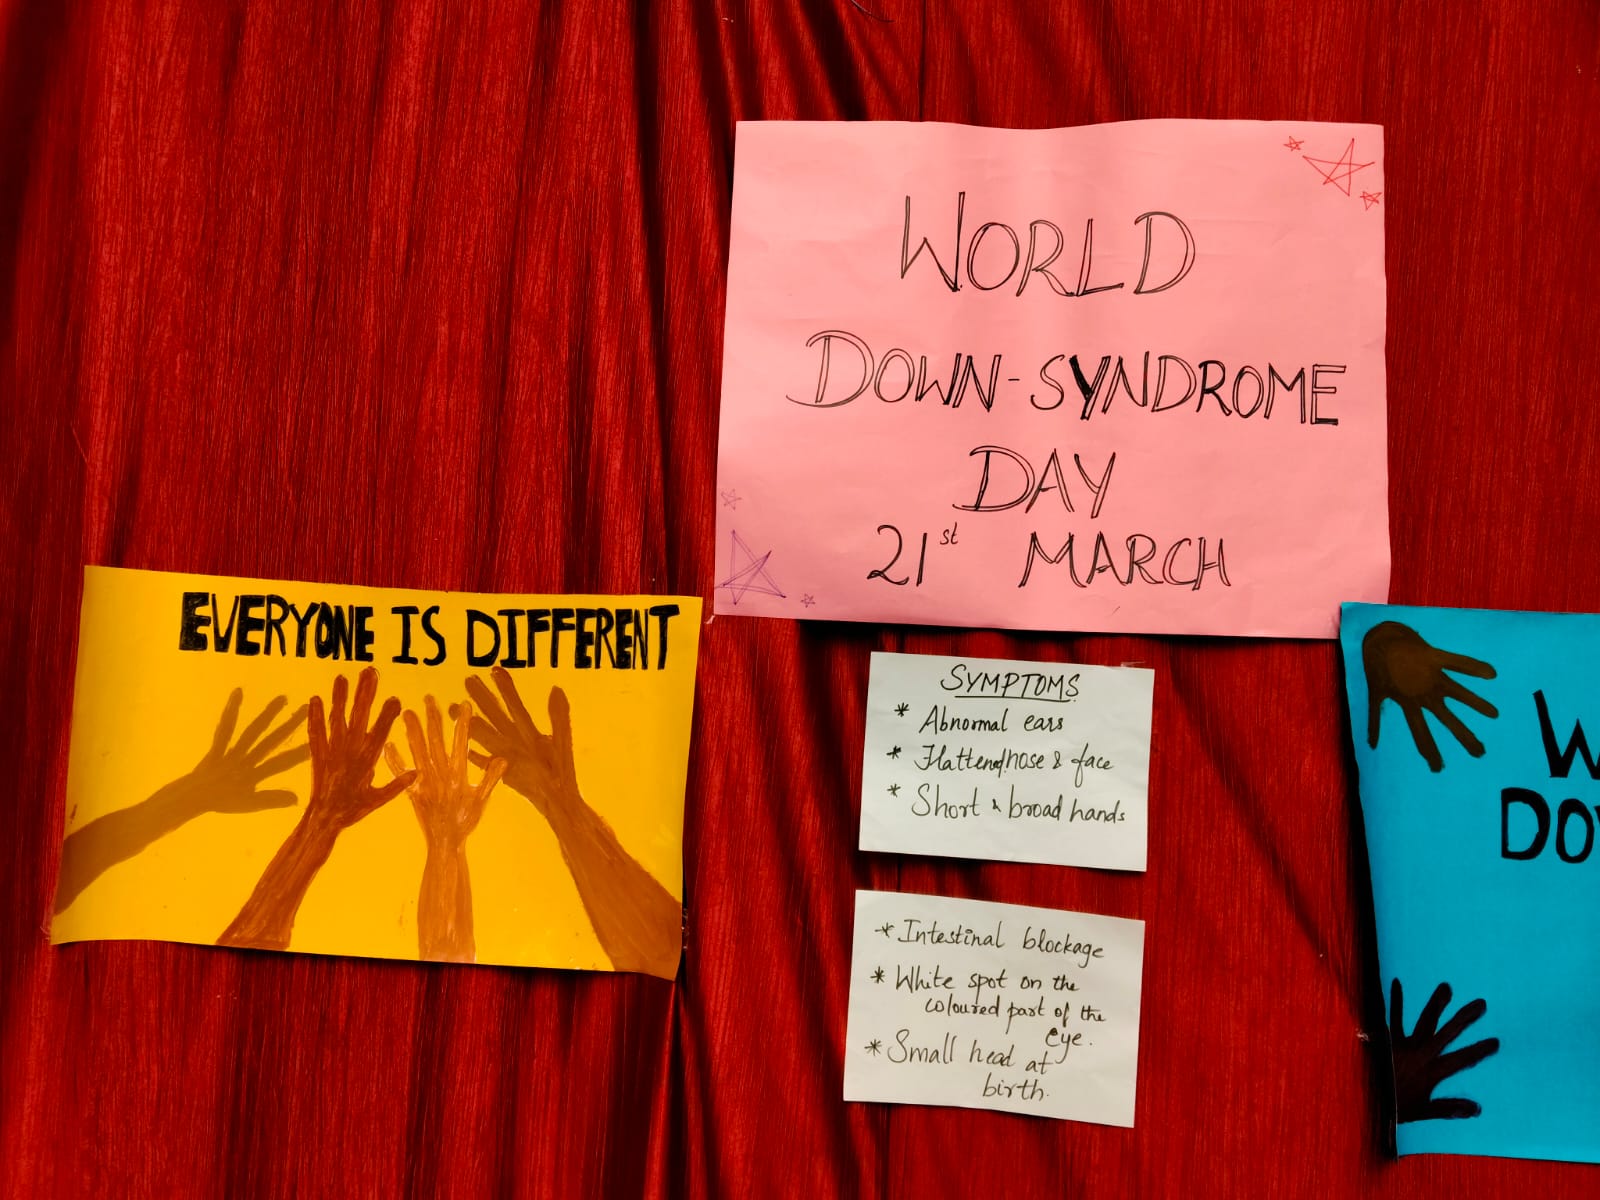 WORLD
DOWN-SYNDROME
DAY
21st MARCH
EVERYONE IS DIFFERENT
SYMPTOMS
* Abnormal ears
* Flattened nose & face
* Short & broad hands
* Intestinal blockage
* White spot on the
coloured part of the
eye.
* Small head at
birth.
W
DO